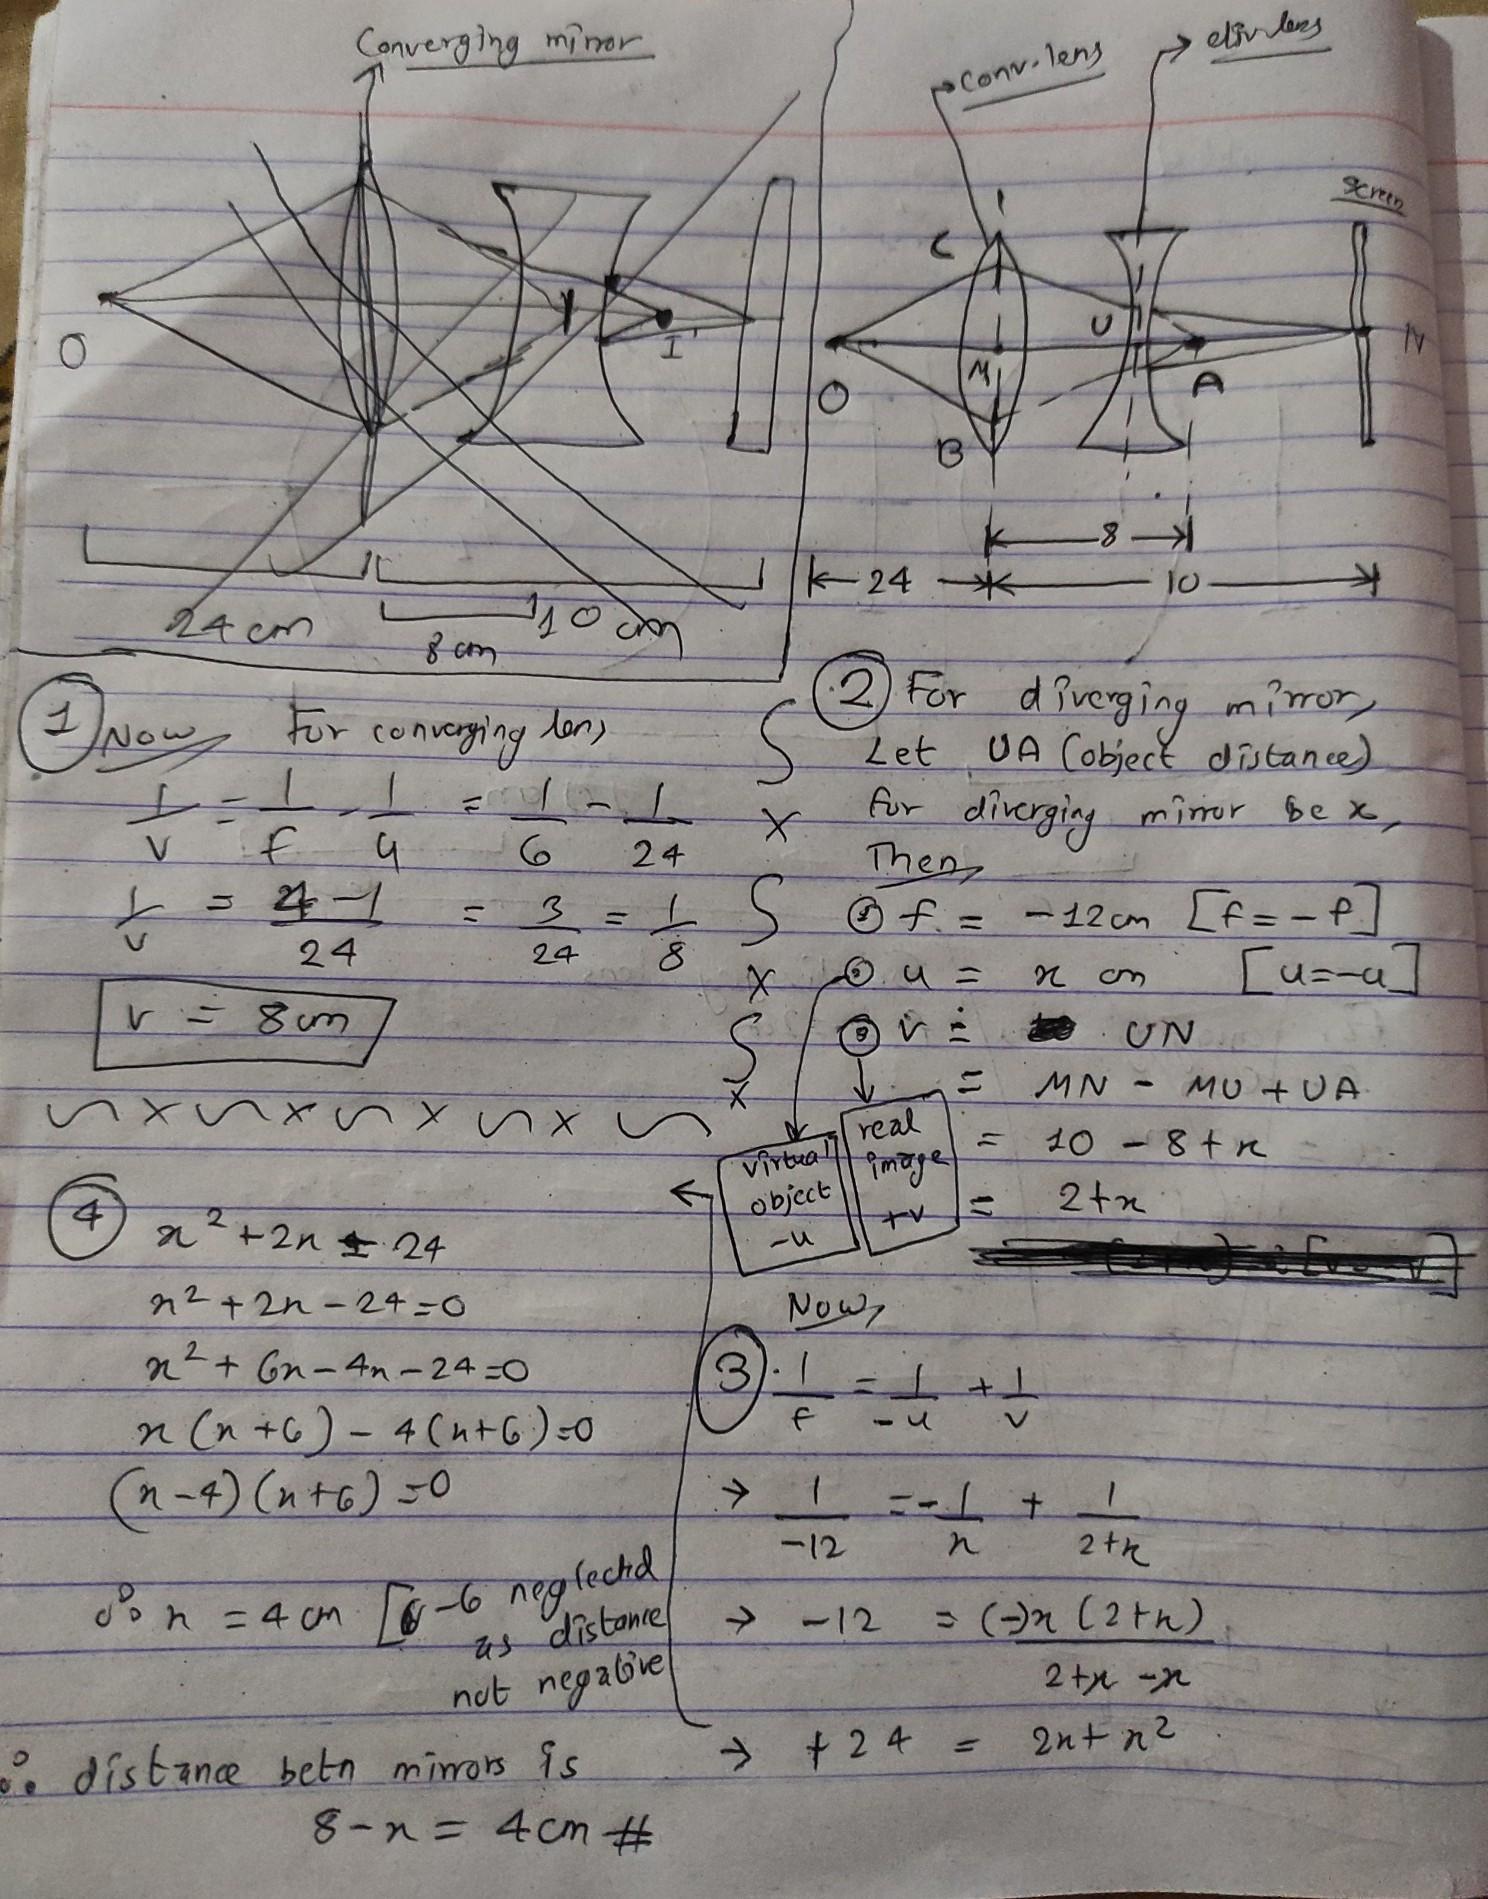 Converging mirror
O
I'
24 cm
8 cm
10 cm
conv. lens
div lens
screen
C
U
M
N
O
A
B
8
24
10
① Now, For converging lens,
1/v = 1/f - 1/u = 1/6 - 1/24
1/v = 4-1/24 = 3/24 = 1/8
v = 8cm
② For diverging mirror,
Let UA (object distance)
for diverging mirror be x,
Then,
① f = -12cm [f = -f]
② u = x cm [u=-u]
③ v = UN
= MN - MU + UA
= 10 - 8 + x
= 2+x
virtual
object
-u
real
image
+v
Now,
③ 1/f = 1/-u + 1/v
→ 1/-12 = -1/x + 1/2+x
→ -12 = (-)x (2+x)/2+x -x
→ +24 = 2x + x²
④ x² + 2x = 24
x² + 2x - 24 = 0
x² + 6x - 4x - 24 = 0
x (x+6) - 4(x+6) = 0
(x-4) (x+6) = 0
∴ x = 4 cm [-6 neglectd
as distance
not negative
∴ distance betn mirrors is
8 - x = 4cm #